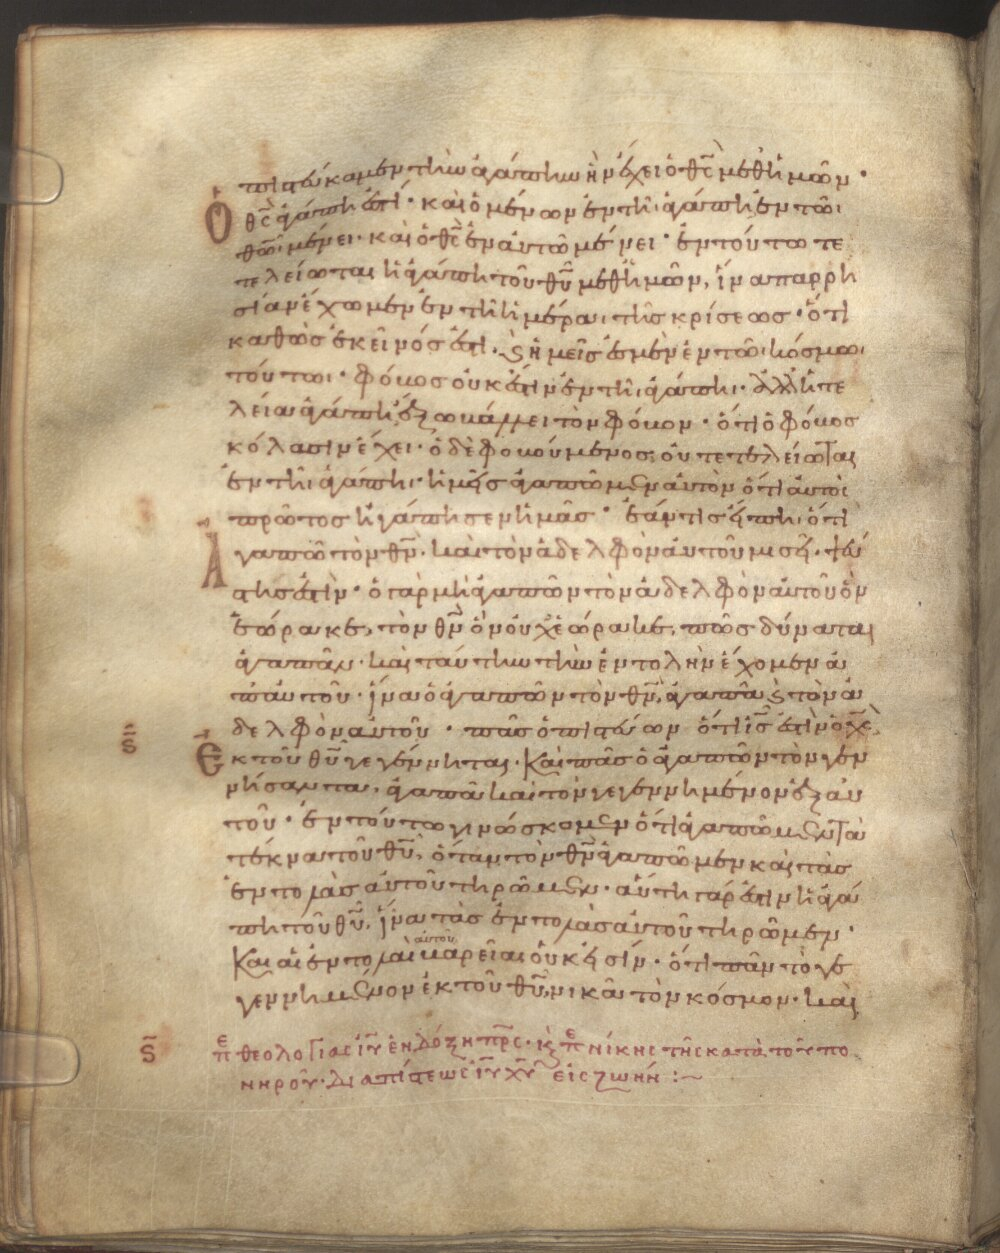 πιστεύκαμεν τὴν ἀγάπην ἣν ἔχει ὁ θς μεθ ἡμῶν·
Ὁ θς ἀγάπη ἐστί· καὶ ὁ μένων ἐν τῆι ἀγάπηι ἐν τῶι
θω μένει· καὶ ὁ θς ἐν αὐτῶ μένει· ἐν τούτω τε
τελείωται ἡ ἀγάπη τοῦ θυ μεθ ἡμῶν, ἵνα παρρη
σίαν ἔχωμεν ἐν τῆι ἡμέραι τῆς κρίσεως· ὅτι
καθὼς ἐκεῖνός ἐστι· ϗ ἡμεῖς ἐσμὲν ἐν τῶι κόσμωι
τούτωι· φόβος οὐκ ἔστιν ἐν τῆι ἀγάπηι· ἀλλ ἡ τε
λεία ἀγάπη ἔξω βάλλει τὸν φόβον· ὅτι ὁ φόβος
κόλασιν ἔχει· ὁ δὲ φοβούμενος οὐ τετελείωται
ἐν τῆι ἀγάπηι· ἡμεῖς ἀγαπῶμεν αὐτὸν ὅτι αὐτὸς
πρῶτος ἠγάπησεν ἡμᾶς· ἐάν τις εἴπηι ὅτι
Ἀγαπῶ τὸν θν· καὶ τὸν ἀδελφὸν αὐτοῦ μισεῖ· ψεύ
στης ἐστίν· ὁ γὰρ μὴ ἀγαπῶν τὸν ἀδελφὸν αὐτοῦ ὃν
ἑώρακε, τὸν θν ὃν οὐχ ἑώρακε, πῶς δύναται
ἀγαπᾶν· καὶ ταύτην τὴν ἐντολὴν ἔχομεν ἀ
π αὐτοῦ· ἵνα ὁ ἀγαπῶν τὸν θν, ἀγαπᾶ ϗ τὸν ἀ
δελφὸν αὐτοῦ· πᾶς ὁ πιστεύων ὅτι ις ἐστὶν ὁ χς
Ἐκ τοῦ θυ γεγέννηται· Καὶ πᾶς ὁ ἀγαπῶν τὸν γεν
νήσαντα, ἀγαπᾶ καὶ τὸν γεγεννημένον ἐξ αὐ
τοῦ· ἐν τούτω γινώσκομεν ὅτι ἀγαπῶμεν τὰ
τέκνα τοῦ θυ, ὅταν τὸν θν ἀγαπῶμεν καὶ τὰς
ἐντολὰς αὐτοῦ τηρῶμεν· αὕτη γάρ ἐστιν ἡ ἀγά
πη τοῦ θυ, ἵνα τὰς ἐντολὰς αὐτοῦ τηρῶμεν·
Καὶ αἱ ἐντολαὶ αὐτοῦ βαρεῖαι οὐκ εἰσίν· ὅτι πᾶν τὸ γε
γεννημένον ἐκ τοῦ θυ, νικᾶ τὸν κόσμον· καὶ
ϛ επ θεολογίας ιυ ἐν δόξη πρς· ϗ επ νίκης τῆς κατὰ τοῦ πο
νηροῦ· διὰ πίστεως ιυ χυ εἰς ζωήν :~